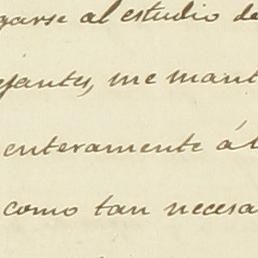 garse al estudio de
ejantes, me mant
enteramente á l
como tan necesa